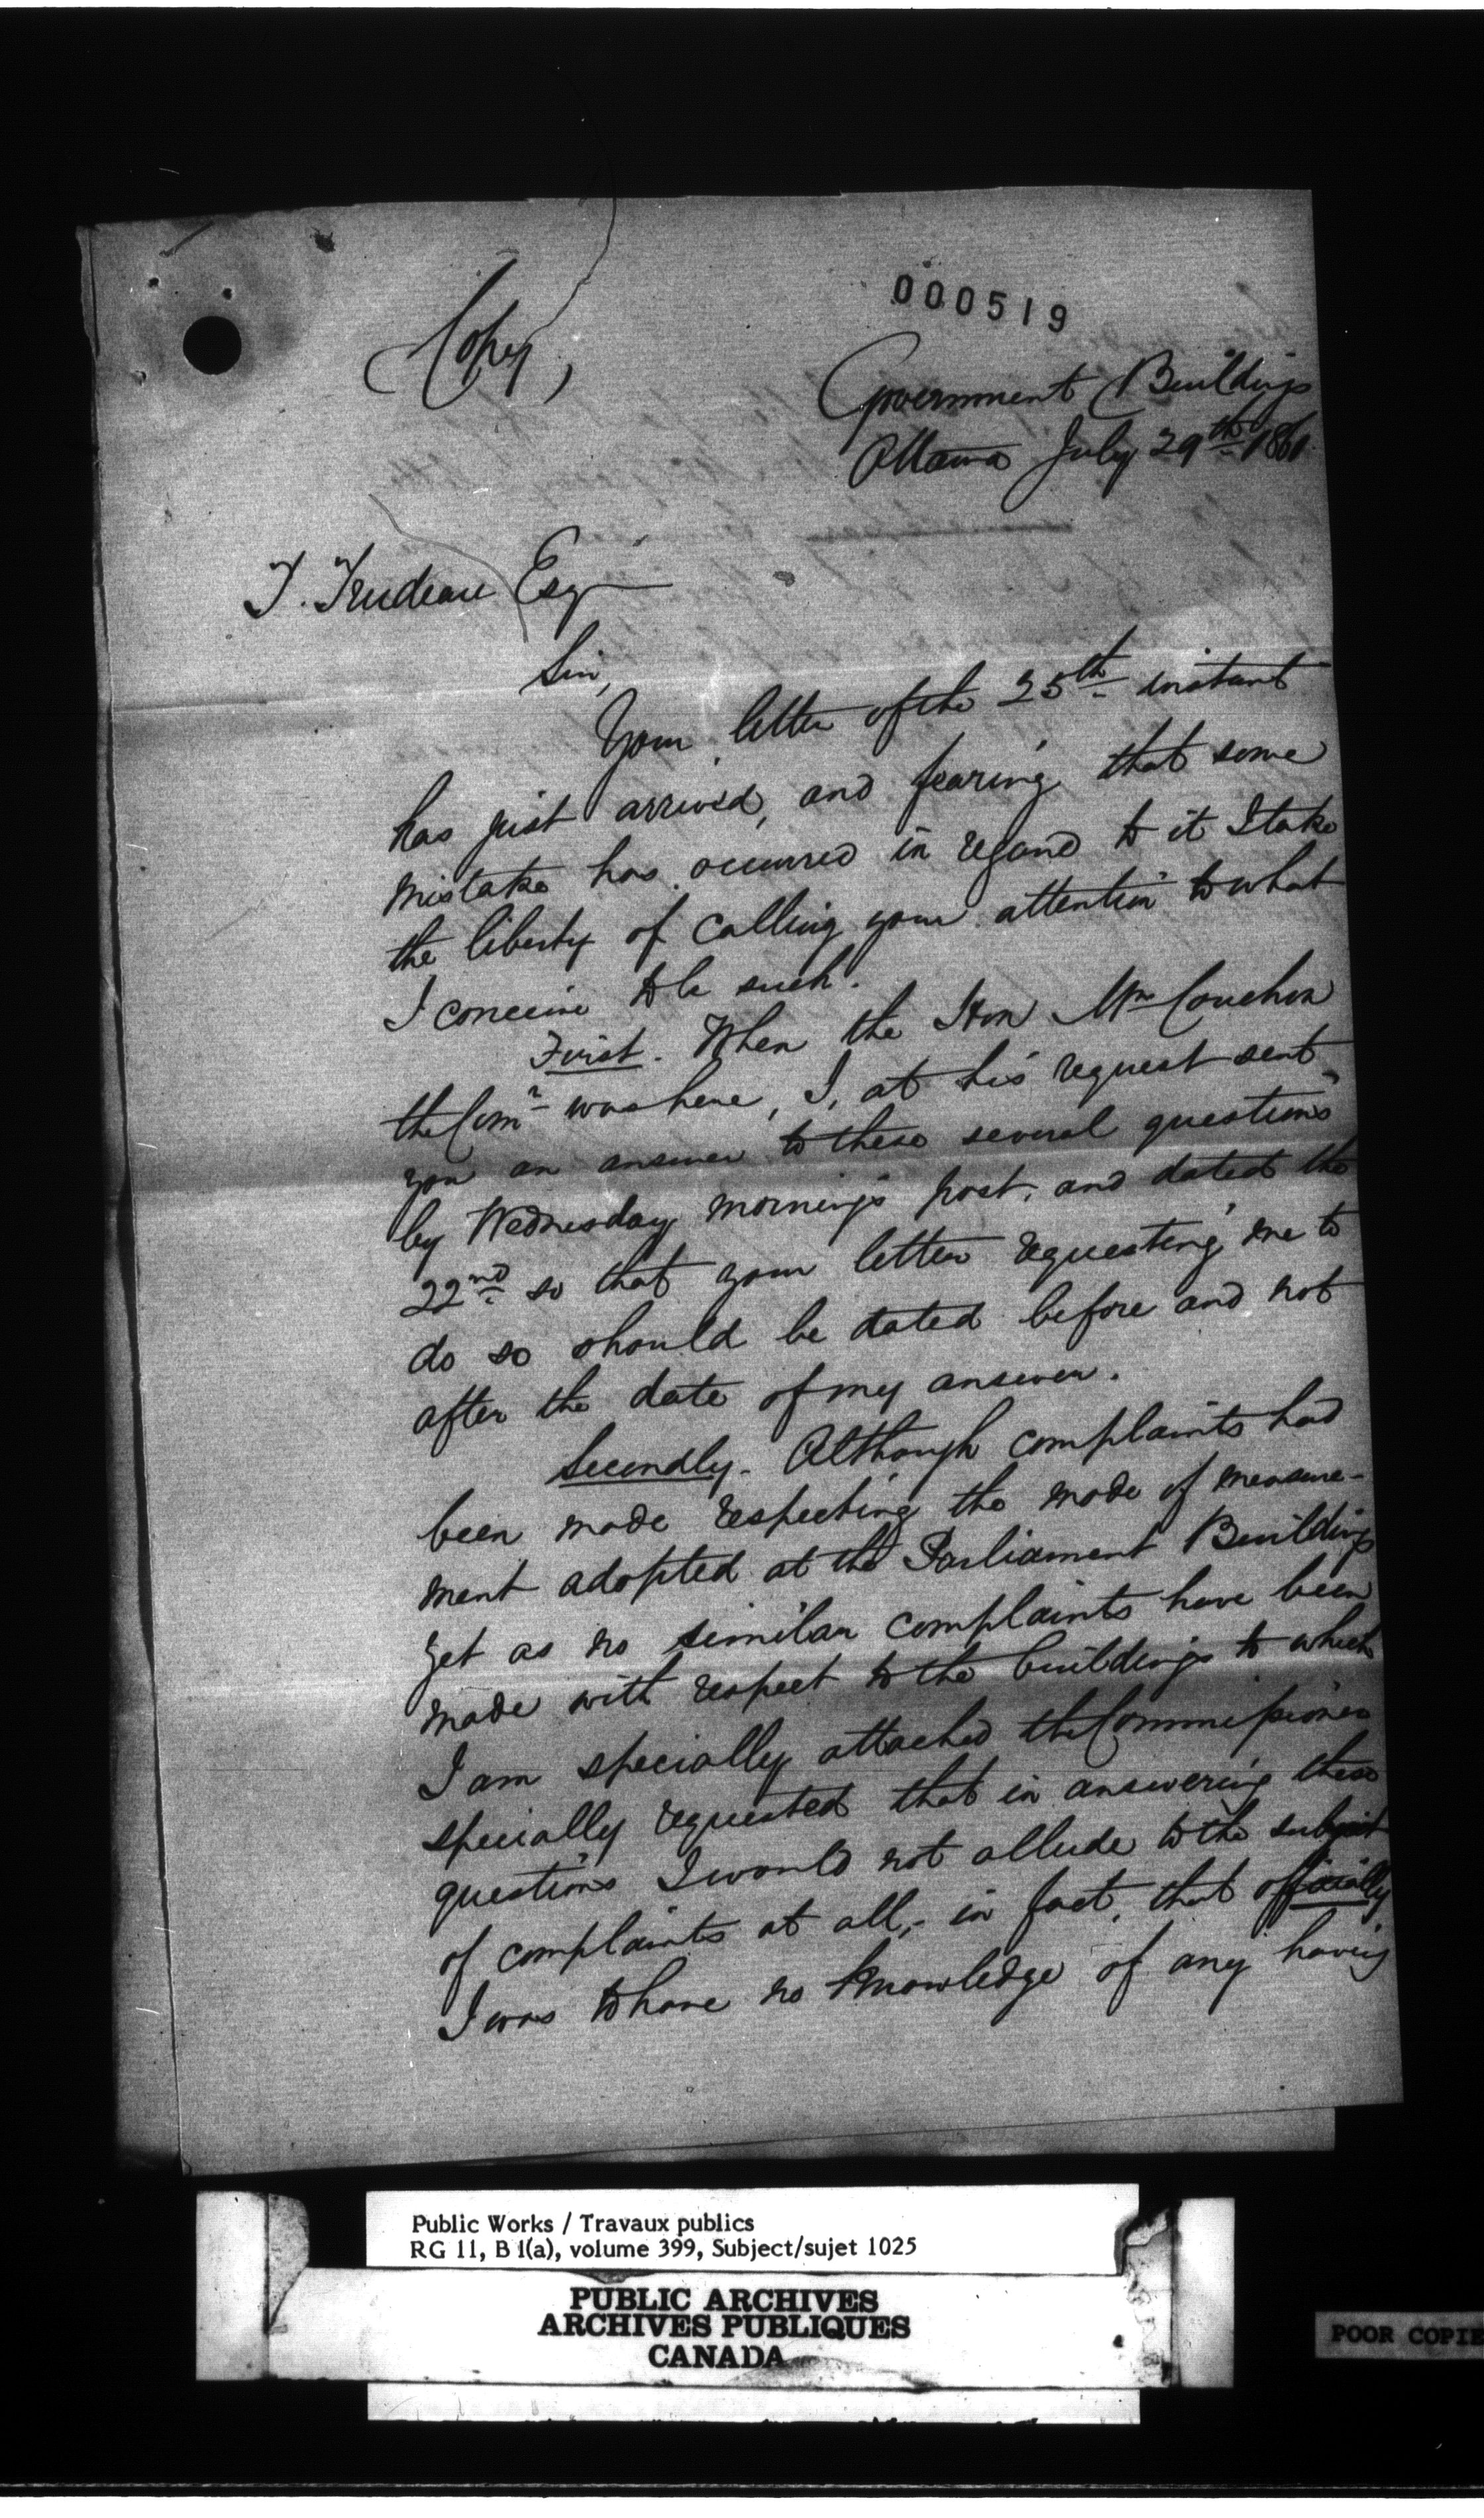 000519
Copy,
Government Buildings
Ottawa July 29th 1861.
T. Trudeau Esq
Sir,
Your letter of the 25th instant
has just arrived, and fearing that some
mistake has occurred in regard to it I take
the liberty of calling your attention to what
I conceive to be such.
First. When the Hon Mr Cauchon
the Comr was here, I, at his request sent
you an answer to these several questions
by Wednesday morning's post, and dated the
22nd so that your letter requesting me to
do so should be dated before and not
after the date of my answer.
Secondly. Although complaints had
been made respecting the mode of measure-
ment adopted at the Parliament Buildings
yet as no similar complaints have been
made with respect to the buildings to which
I am specially attached the Commissioner
specially requested that in answering these
questions I would not allude to the subject
of complaints at all, - in fact, that officially
I was to have no knowledge of any having
Public Works / Travaux publics
RG 11, B 1(a), volume 399, Subject/sujet 1025
PUBLIC ARCHIVES
ARCHIVES PUBLIQUES
CANADA
POOR COPIE